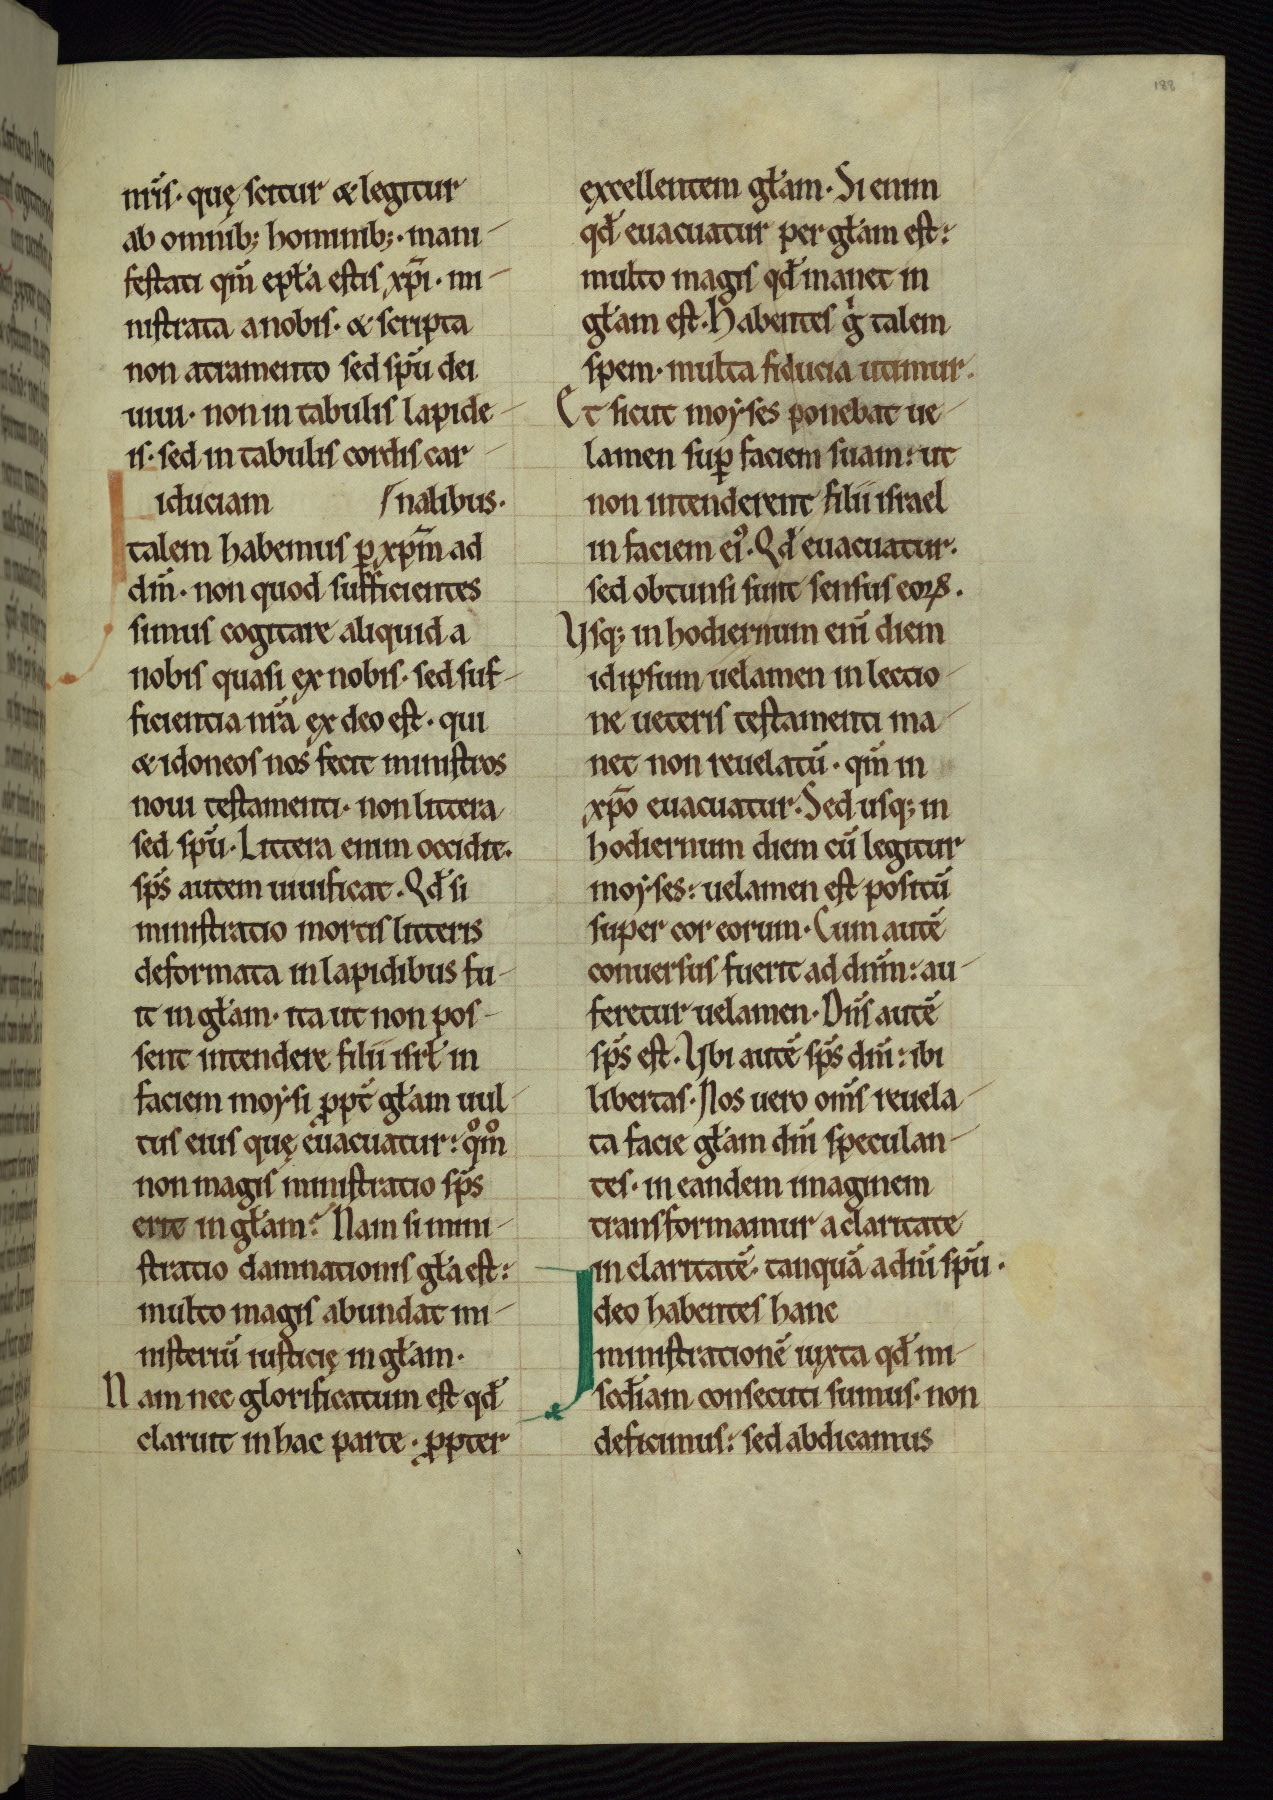 188
nr̄is· quę scitur & legitur
ab omnib; hominib;· mani-
festati qm̄ epła estis xp̄i· mi-
nistrata a nobis· & scripta
non atramento sed sp̄u dei
uiui· non in tabulis lapide-
is· sed in tabulis cordis car-
nalibus·
Fiduciam
talem habemus ꝑ xp̄m ad
dm̄· non quod sufficientes
simus cogitare aliquid a
nobis quasi ex nobis· sed suf-
ficientia nr̄a ex deo est· qui
& idoneos nos fecit ministros
noui testamenti· non littera
sed sp̄u· Littera enim occidit·
sp̄s autem uiuificat· Qđ si
ministratio mortis litteris
deformata in lapidibus fu-
it in głam· ita ut non pos-
sent intendere filii isrł in
faciem moysi ꝓpt̄ głam uul-
tus eius quę euacuatur: qͦmͦ
non magis ministratio sp̄s
erit in głam? Nam si mini-
stratio damnationis gła est:
multo magis abundat mi-
nisteriū iusticię in głam·
Nam nec glorificatum est qđ
claruit in hac parte· ꝓpter
excellentem głam· Si enim
qđ euacuatur per głam est:
multo magis qđ manet in
głam est· Habentes gͥ talem
spem· multa fiducia utimur·
Et sicut moyses ponebat ue-
lamen suꝑ faciem suam: ut
non intenderent filii israel
in faciem ei᾽· Qđ euacuatur·
sed obtunsi sunt sensus eoꝝ·
Usq; in hodiernum eni diem
idipsum uelamen in lectio-
ne ueteris testamenti ma-
net non reuelatū· qm̄ in
xp̄o euacuatur· Sed usq; in
hodiernum diem cū legitur
moyses: uelamen est positū
super cor eorum· Cum autē
conuersus fuerit ad dnm̄: au-
feretur uelamen· Dn̄s autē
sp̄s est· Ubi autē sp̄s dni: ibi
libertas· Nos uero om̄s reuela-
ta facie głam dni speculan-
tes· in eandem imaginem
transformamur a claritate
in claritatē· tanquā a dn̄i sp̄u·
Ideo habentes hanc
ministrationē iuxta qđ mi-
sedīam consecuti sumus· non
deficimus: sed abdicamus